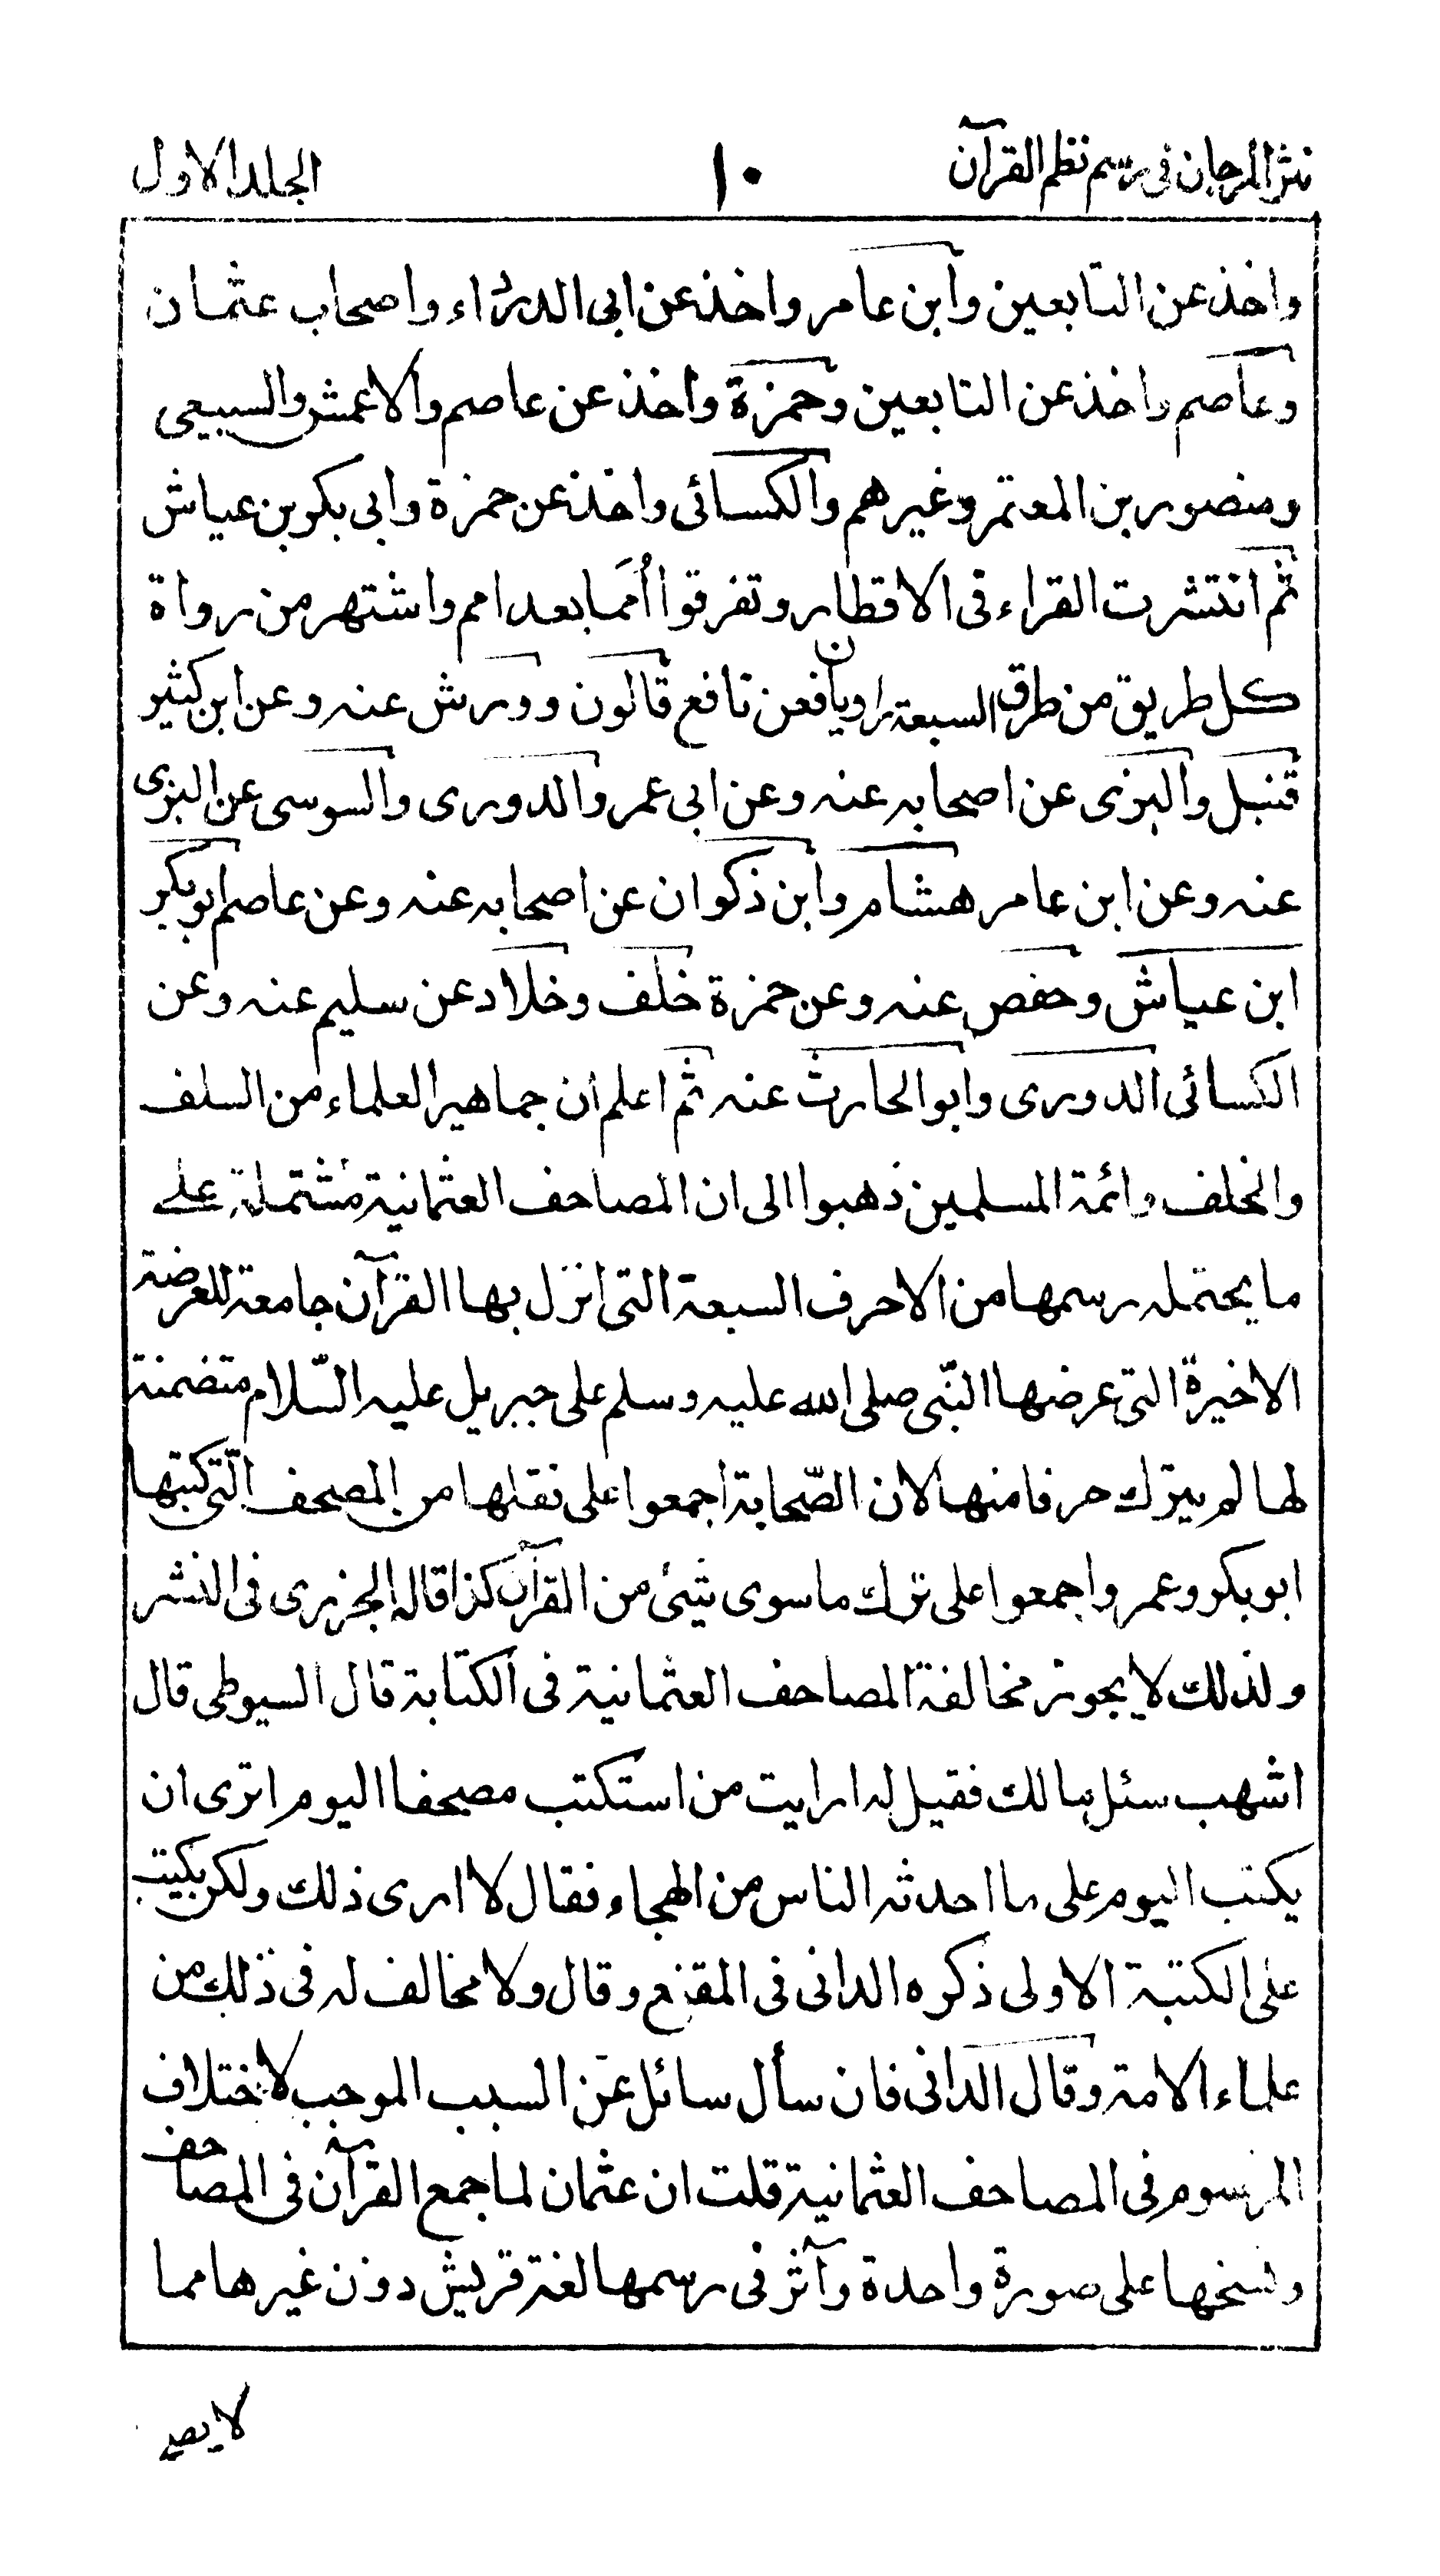 نثر المرجان فى رسم نظم القرآن ١٠ الجلد الاول
واخذ عن التابعين وابن عامر واخذ عن ابى الدرداء واصحاب عثمان
وعاصم واخذ عن التابعين وحمزة واخذ عن عاصم والاعمش والسبيعى
ومنصور بن المعتمر وغيرهم والكسائى واخذ عن حمزة وابى بكر بن عياش
ثم انتشرت القراء فى الاقطار وتفرقوا أُمَما بعد امم واشتهر من رواة
كل طريق من طرق السبعة راويان فعن نافع قالون وورش عنه وعن ابن كثير
قنبل والبزى عن اصحابه عنه وعن ابى عمر والدورى والسوسى عن اليزى
عنه وعن ابن عامر هشام وابن ذكوان عن اصحابه عنه وعن عاصم ابو بكر
ابن عياش وحفص عنه وعن حمزة خلف وخلاد عن سليم عنه وعن
الكسائى الدورى وابو الحارث عنه ثم اعلم ان جماهير العلماء من السلف
والخلف وائمة المسلمين ذهبوا الى ان المصاحف العثمانية مشتملة على
ما يحتمله رسمها من الاحرف السبعة التى انزل بها القرآن جامعة للعرضة
الاخيرة التى عرضها النّبى صلى الله عليه وسلم على جبريل عليه السّلام متضمنة
لها لم يترك حرفا منها لان الصّحابة اجمعوا على نقلها من المصحف الّتى كتبها
ابو بكر وعمر واجمعوا على ترك ما سوى شئ من القرآن كذا قاله الجزرى فى النشر
ولذلك لا يجوز مخالفة المصاحف العثمانية فى الكتابة قال السيوطى قال
اشهب سئل مالك فقيل له ارايت من استكتب مصحفا اليوم اترى ان
يكتب اليوم على ما احدثه الناس من الهجاء فقال لا ارى ذلك ولكن يكتب
على الكتبة الاولى ذكره الدانى فى المقنع وقال ولا مخالف له فى ذلك من
علماء الامة وقال الدانى فان سأل سائل عن السبب الموجب لاختلاف
المرسوم فى المصاحف العثمانية قلت ان عثمان لما جمع القرآن فى المصاحف
ونسخها على صورة واحدة وآثر فى رسمها لغة قريش دون غيرها مما
لا يصح